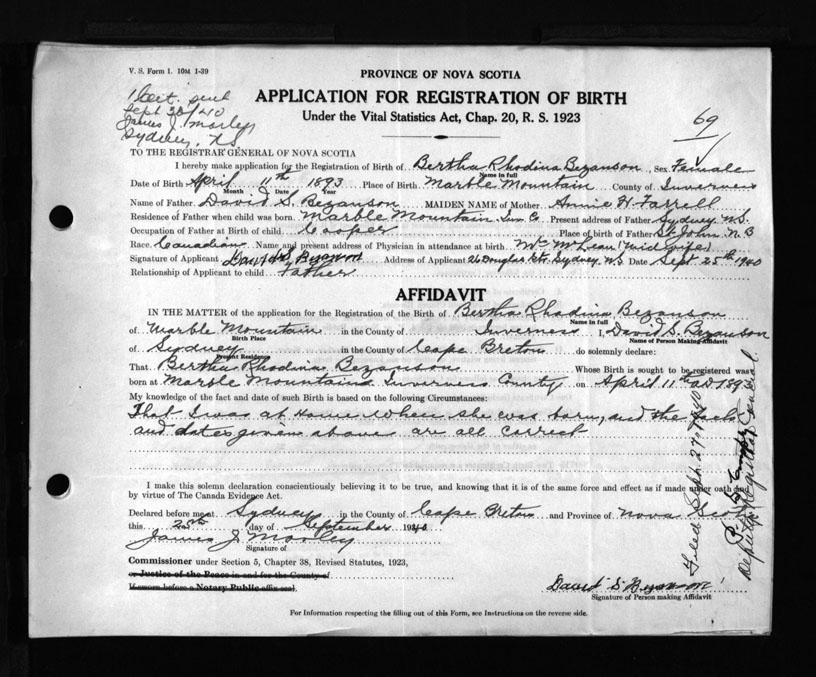 V. S. Form 1. 10M 1-39
PROVINCE OF NOVA SCOTIA
1 Cert. sent
Sept 30/40
James J. Morley
Sydney, NS
APPLICATION FOR REGISTRATION OF BIRTH
Under the Vital Statistics Act, Chap. 20, R. S. 1923
69
TO THE REGISTRAR GENERAL OF NOVA SCOTIA
I hereby make application for the Registration of Birth of Bertha Rhodina Bezanson, Sex Female
Name in full
Date of Birth April 11th 1893 Place of Birth Marble Mountain County of Inverness
Month Date Year
Name of Father David S. Bezanson MAIDEN NAME of Mother Annie H Farrell
Residence of Father when child was born. Marble Mountain Inv. Co. Present address of Father Sydney N.S.
Occupation of Father at Birth of child Cooper Place of birth of Father St John N.B
Race Canadian Name and present address of Physician in attendance at birth. Mrs McLean (midwife)
Signature of Applicant David S Bezanson Address of Applicant Douglas St. Sydney N.S. Date Sept. 25th 1940
Relationship of Applicant to child Father
AFFIDAVIT
IN THE MATTER of the application for the Registration of the Birth of Bertha Rhodina Bezanson
Name in full
of Marble Mountain in the County of Inverness I, David S. Bezanson
Birth Place Name of Person Making Affidavit
of Sydney in the County of Cape Breton do solemnly declare:
Present Residence
That Bertha Rhodina Bezanson Whose Birth is sought to be registered was
born at Marble Mountain Inverness County on April 11th AD 189
My knowledge of the fact and date of such Birth is based on the following Circumstances:
That I was at Home when she was born, and the facts
and dates given above are all correct
I make this solemn declaration conscientiously believing it to be true, and knowing that it is of the same force and effect as if made under oath and
by virtue of The Canada Evidence Act.
Declared before me at Sydney in the County of Cape Breton and Province of Nova Scotia
this 25th day of September 1940
James J Morley
Signature of
Commissioner under Section 5, Chapter 38, Revised Statutes, 1923,
or Justice of the Peace in and for the County of
If sworn before a Notary Public affix seal.
David S Bezanson
Signature of Person making Affidavit
Filed Sept. 27, 1940
Deputy Registrar General
For Information respecting the filling out of this Form, see Instructions on the reverse side.